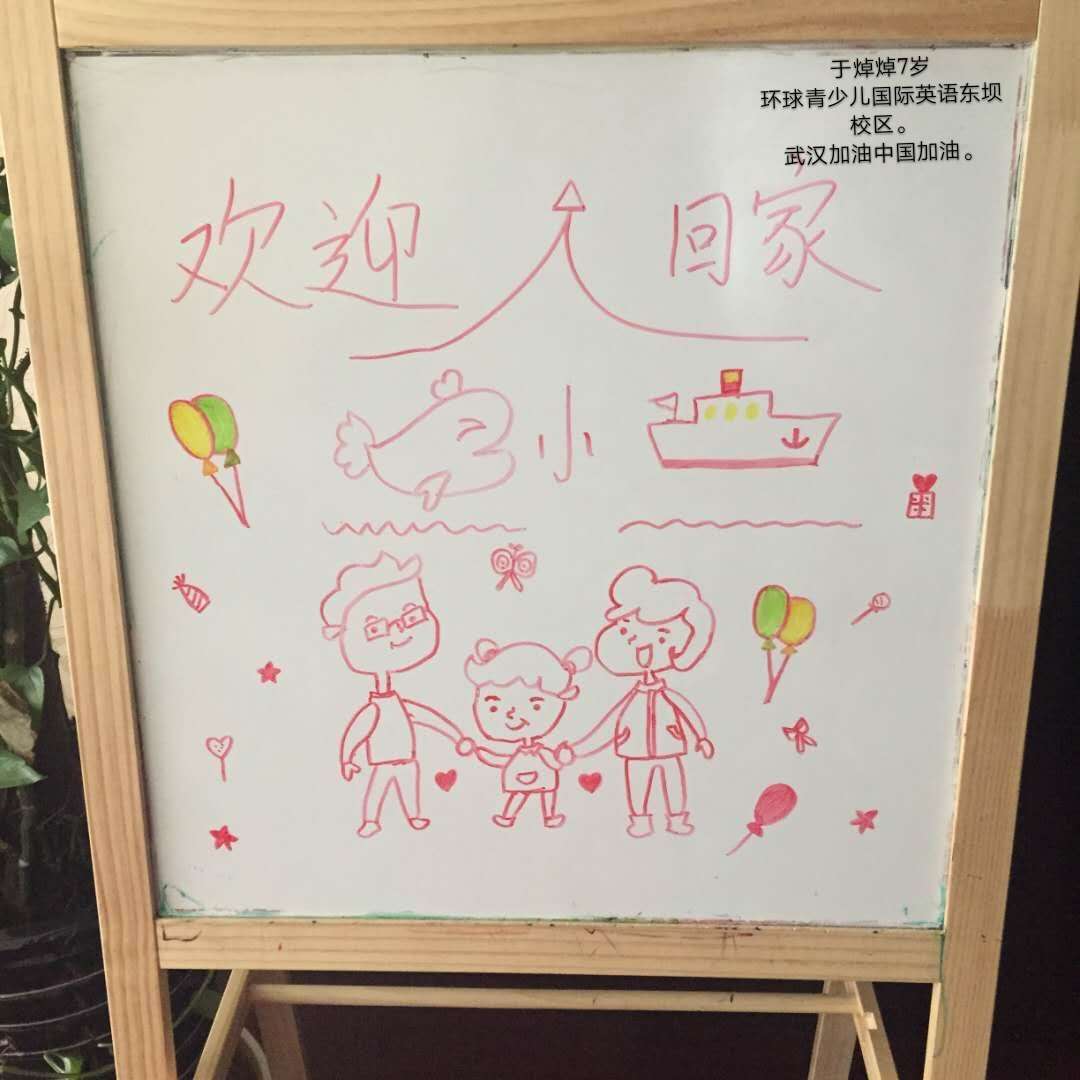 于焯焯7岁
环球青少儿国际英语东坝
校区。
武汉加油中国加油。
欢迎 大 回家
小